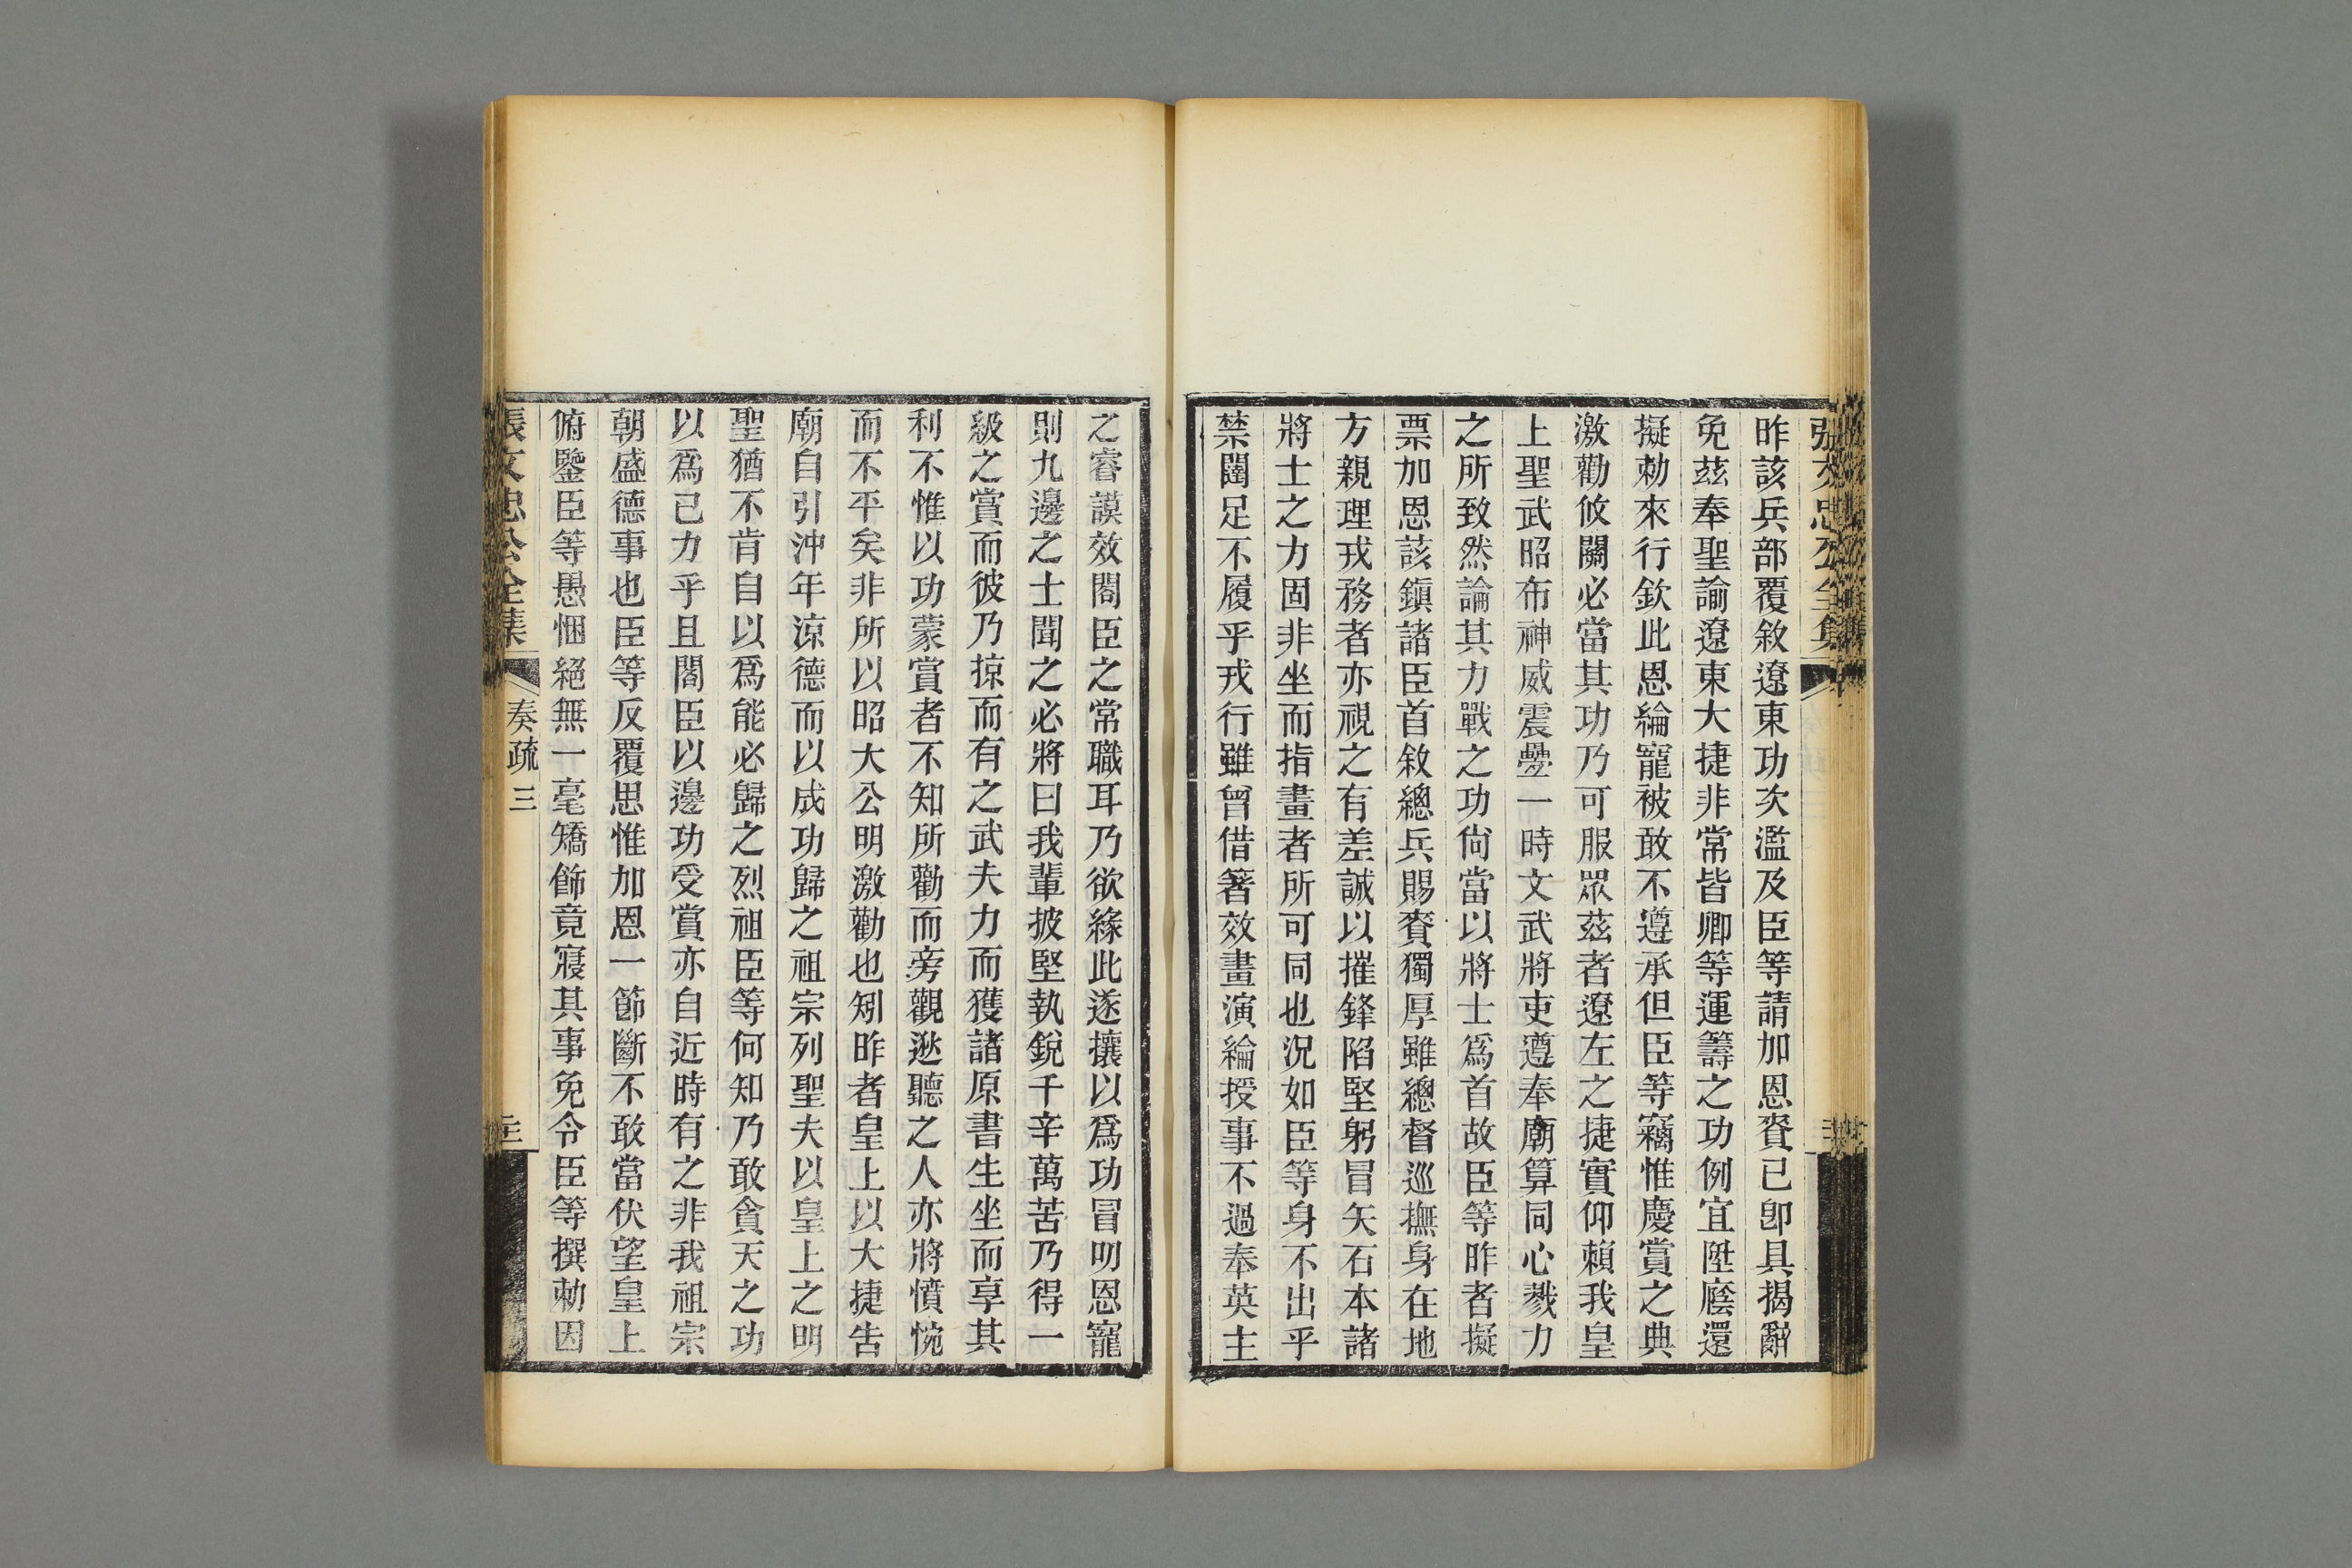 昨該兵部覆敘遼東功次濫及臣等請加恩賚已卽具揭辭
免茲奉聖諭遼東大捷非常皆卿等運籌之功例宜陞廕還
擬勅來行欽此恩綸寵被敢不遵承但臣等竊惟慶賞之典
激勸攸關必當其功乃可服眾茲者遼左之捷實仰賴我皇
上聖武昭布神威震疊一時文武將吏遵奉廟算同心戮力
之所致然論其力戰之功尙當以將士爲首故臣等昨者擬
票加恩該鎭諸臣首敘總兵賜賚獨厚雖總督巡撫身在地
方親理戎務者亦視之有差誠以摧鋒陷堅躬冒矢石本諸
將士之力固非坐而指畫者所可同也況如臣等身不出乎
禁闥足不履乎戎行雖曾借箸效畫演綸授事不過奉英主
之睿謨效閣臣之常職耳乃欲緣此遂攘以爲功冒叨恩寵
則九邊之士聞之必將曰我輩披堅執銳千辛萬苦乃得一
級之賞而彼乃掠而有之武夫力而獲諸原書生坐而享其
利不惟以功蒙賞者不知所勸而旁觀逖聽之人亦將憤惋
而不平矣非所以昭大公明激勸也矧昨者皇上以大捷告
廟自引沖年涼德而以成功歸之祖宗列聖夫以皇上之明
聖猶不肯自以爲能必歸之烈祖臣等何知乃敢貪天之功
以爲己力乎且閣臣以邊功受賞亦自近時有之非我祖宗
朝盛德事也臣等反覆思惟加恩一節斷不敢當伏望皇上
俯鑒臣等愚悃絕無一毫矯飾竟寢其事免令臣等撰勅因
張文忠公全集 奏疏三